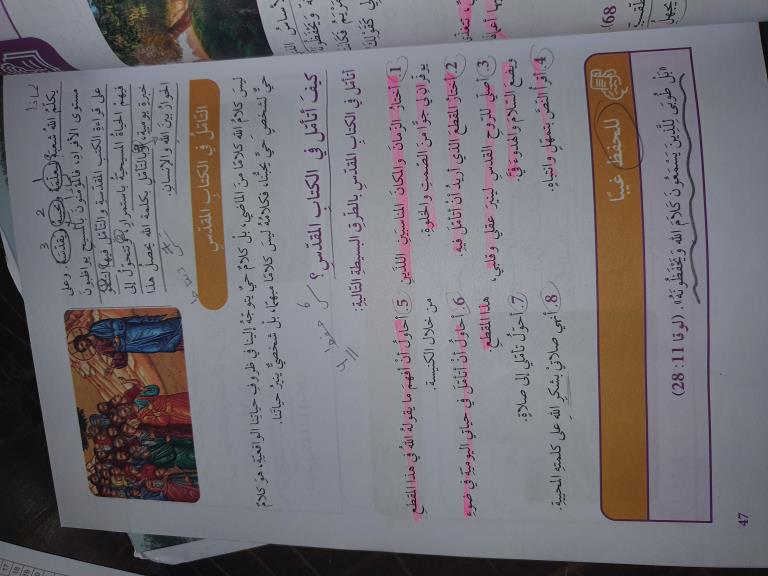 يكلّم الله شعبه ليعلّمه ويحييه ويقدّسه. وعلى
مستوى الأفراد، فالمؤمنون بالمسيح يواظبون
على قراءة الكتب المقدّسة والتأمّل فيها لتنمو
فيهم الحياة المسيحية باستمرار، وتتحوّل إلى
خبرة يومية، فبالتأمّل بكلمة الله يحصل هذا
الحوار بين الله والإنسان.
لماذا
1
2
3
التأمّل في الكتاب المقدّس
ليس كلام الله كلامًا من الماضي، بل كلام حيّ يتوجّه إلينا في ظروف حياتنا الواقعية، هو كلام
حيّ لشخص حيّ يحبّنا، فكلامه ليس كلامًا مبهمًا، بل شخصيّ ينير حياتنا.
كيف أتأمّل في الكتاب المقدّس؟
أتأمّل في الكتاب المقدّس بالطرق البسيطة التالية:
1. أختار الزمان والمكان المناسبين اللذين
يوفّران لي جوًّا من الصمت والخلوة.
2. أختار المقطع الذي أريد أن أتأمّل فيه.
3. أصلّي للروح القدس لينير عقلي وقلبي،
ويضع السلام والهدوء فيّ.
4. أقرأ النص بتمهّل وانتباه.
5. أحاول أن أفهم ما يقوله الله في هذا المقطع.
من خلال الكنيسة.
6. أحاول أن أتأمّل في حياتي اليومية في ضوء
هذا المقطع.
7. أحوّل تأمّلي إلى صلاة.
8. أنهي صلاتي بشكر الله على كلمته المحيية.
للحفظ غيبًا
«بل طوبى للذين يسمعون كلام الله ويحفظونه». (لوقا 11: 28)
47